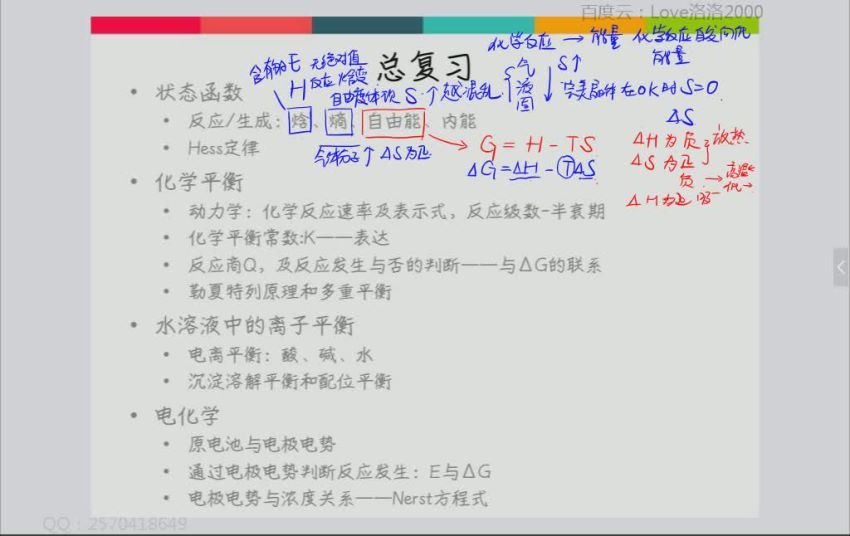 百度云：Love洛洛2000
化学反应 → 能量 化学反应自发向低能量
总复习
含有的E 无绝对值
H 反应焓变
自由度体现 S ↑ 越混乱
气
液
固
S↑
完美晶体在0K时 S=0
• 状态函数
• 反应/生成：焓、熵、自由能、内能
• Hess定律
气体分子↑ ΔS为正
G = H - TS
ΔG = ΔH - TΔS
ΔS
ΔH为负 放热
ΔS为正
负 → 高温
ΔH为正
• 化学平衡
• 动力学：化学反应速率及表示式，反应级数-半衰期
• 化学平衡常数:K——表达
• 反应商Q，及反应发生与否的判断——与ΔG的联系
• 勒夏特列原理和多重平衡
• 水溶液中的离子平衡
• 电离平衡：酸、碱、水
• 沉淀溶解平衡和配位平衡
• 电化学
• 原电池与电极电势
• 通过电极电势判断反应发生：E与ΔG
• 电极电势与浓度关系——Nerst方程式
QQ：2570418649